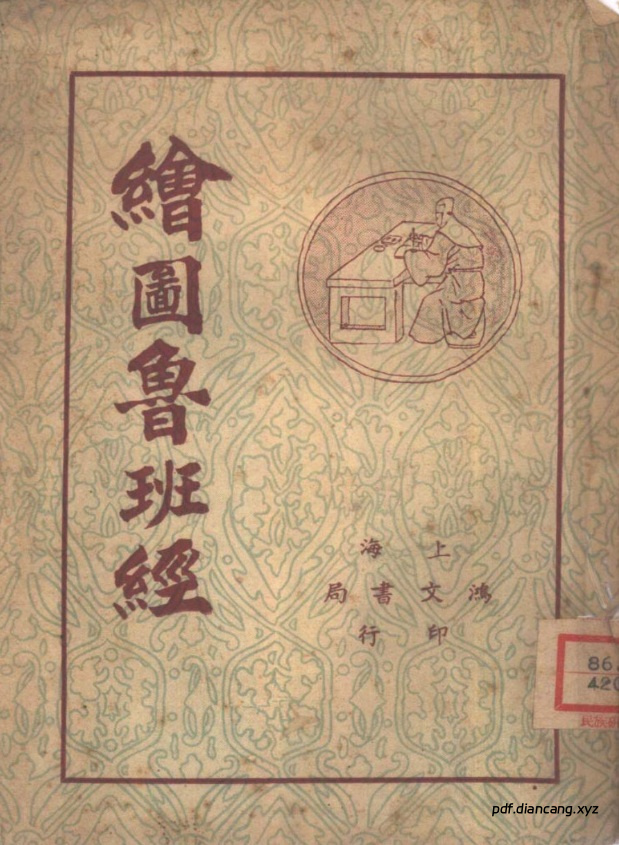 繪圖魯班經
上海
鴻文書局
印行
86.
420
民族
pdf.diancang.xyz